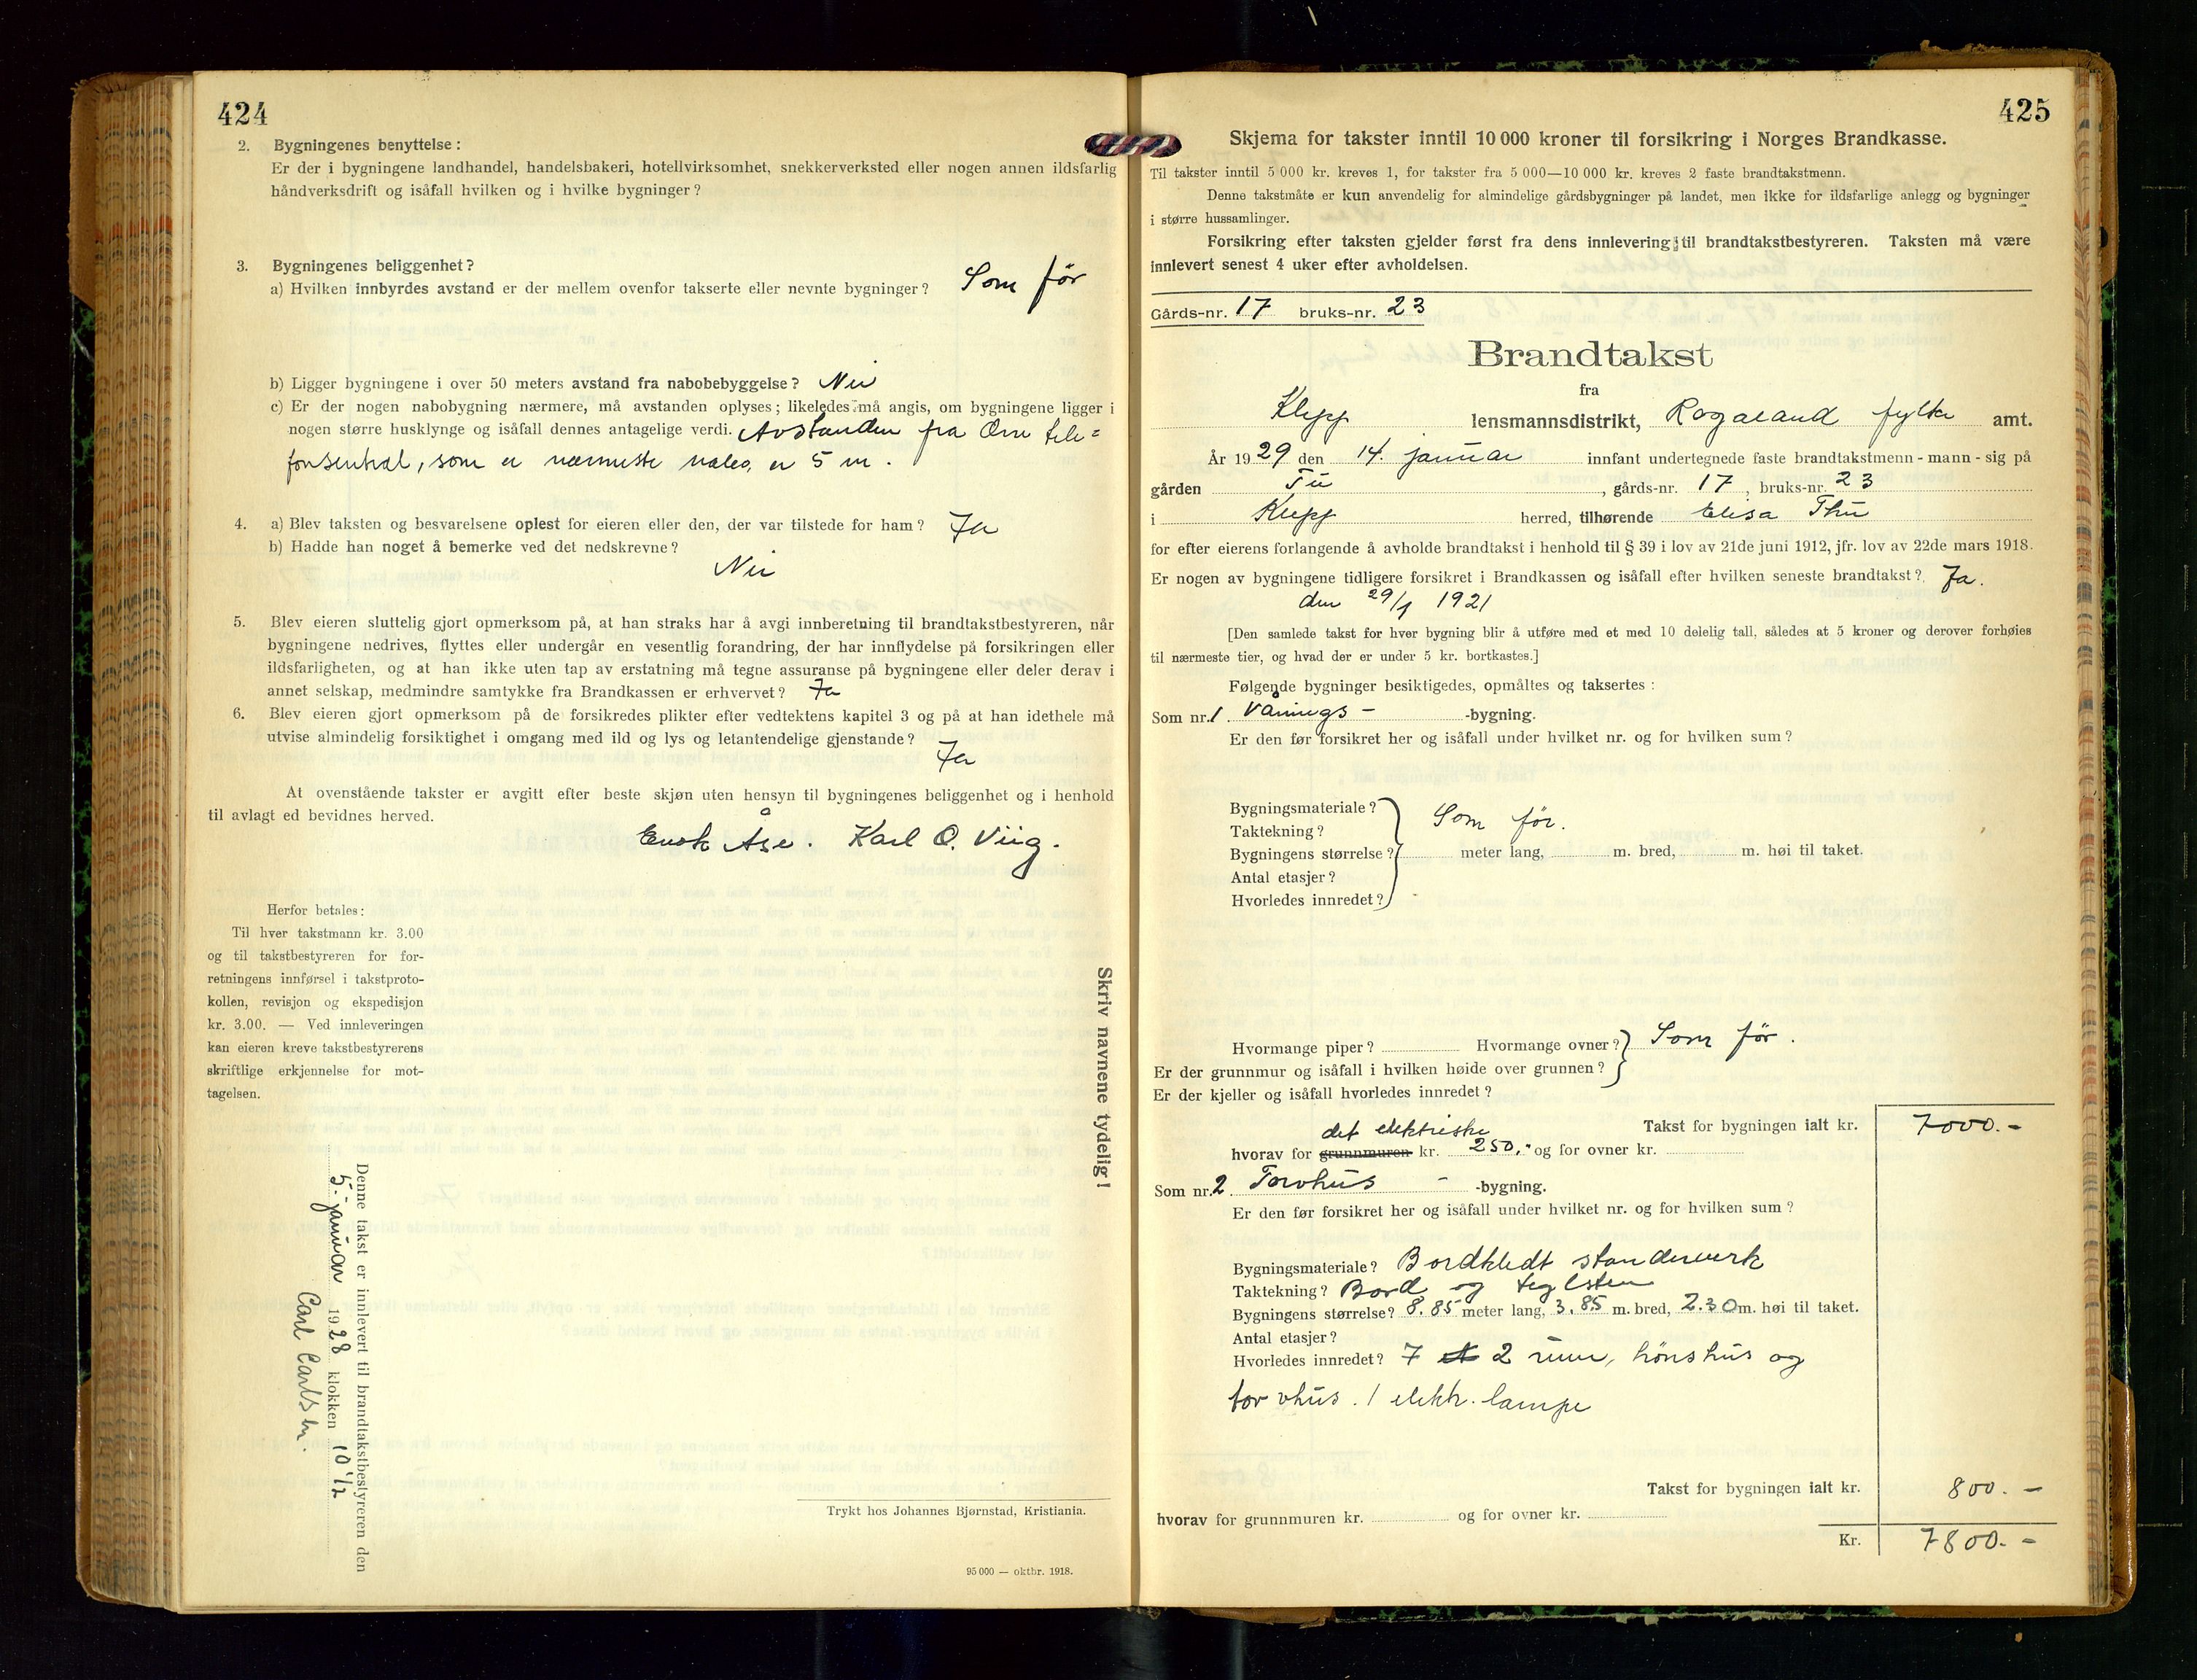 424
2. Bygningenes benyttelse :
Er der i bygningene landhandel, handelsbakeri, hotellvirksomhet, snekkerverksted eller nogen annen ildsfarlig
håndverksdrift og isåfall hvilken og i hvilke bygninger ?
3. Bygningenes beliggenhet ?
a) Hvilken innbyrdes avstand er der mellem ovenfor takserte eller nevnte bygninger ? Som før
b) Ligger bygningene i over 50 meters avstand fra nabobebyggelse ? Nei
c) Er der nogen nabobygning nærmere, må avstanden oplyses ; likeledes må angis, om bygningene ligger i
nogen større husklynge og isåfall dennes antagelige verdi. Avstanden fra Orre tele=
fonsentral, som er nærmeste nabo, er 5 m.
4. a) Blev taksten og besvarelsene oplest for eieren eller den, der var tilstede for ham ? Ja
b) Hadde han noget å bemerke ved det nedskrevne ?
Nei
5. Blev eieren sluttelig gjort opmerksom på, at han straks har å avgi innberetning til brandtakstbestyreren, når
bygningene nedrives, flyttes eller undergår en vesentlig forandring, der har innflydelse på forsikringen eller
ildsfarligheten, og at han ikke uten tap av erstatning må tegne assuranse på bygningene eller deler derav i
annet selskap, medmindre samtykke fra Brandkassen er erhvervet ? Ja
6. Blev eieren gjort opmerksom på de forsikredes plikter efter vedtektens kapitel 3 og på at han idethele må
utvise almindelig forsiktighet i omgang med ild og lys og letantendelige gjenstande ?
Ja
At ovenstående takster er avgitt efter beste skjøn uten hensyn til bygningenes beliggenhet og i henhold
til avlagt ed bevidnes herved.
Enok Åse. Karl O. Viig.
Herfor betales :
Til hver takstmann kr. 3.00
og til takstbestyreren for for-
retningens innførsel i takstproto-
kollen, revisjon og ekspedisjon
kr. 3.00. — Ved innleveringen
kan eieren kreve takstbestyrerens
skriftlige erkjennelse for mot-
tagelsen.
Skriv navnene tydelig !
Denne takst er innlevert til brandtakstbestyreren den
5. januar 1928 klokken 10 1/2
Carl Carlsen.
Trykt hos Johannes Bjørnstad, Kristiania.
95 000 — oktbr. 1918.
425
Skjema for takster inntil 10 000 kroner til forsikring i Norges Brandkasse.
Til takster inntil 5 000 kr. kreves 1, for takster fra 5 000—10 000 kr. kreves 2 faste brandtakstmenn.
Denne takstmåte er kun anvendelig for almindelige gårdsbygninger på landet, men ikke for ildsfarlige anlegg og bygninger
i større hussamlinger.
Forsikring efter taksten gjelder først fra dens innlevering til brandtakstbestyreren. Taksten må være
innlevert senest 4 uker efter avholdelsen.
Gårds-nr. 17 bruks-nr. 23
Brandtakst
fra
Klepp lensmannsdistrikt, Rogaland fylke amt.
År 1929 den 14. januar innfant undertegnede faste brandtakstmenn - mann - sig på
gården Tu, gårds-nr. 17, bruks-nr. 23
i Klepp herred, tilhørende Elisa Thu
for efter eierens forlangende å avholde brandtakst i henhold til § 39 i lov av 21de juni 1912, jfr. lov av 22de mars 1918.
Er nogen av bygningene tidligere forsikret i Brandkassen og isåfall efter hvilken seneste brandtakst ? Ja.
den 29/1 1921
[Den samlede takst for hver bygning blir å utføre med et med 10 delelig tall, således at 5 kroner og derover forhøies
til nærmeste tier, og hvad der er under 5 kr. bortkastes.]
Følgende bygninger besiktigedes, opmåltes og taksertes :
Som nr. 1 Vånings- -bygning.
Er den før forsikret her og isåfall under hvilket nr. og for hvilken sum ?
Bygningsmateriale ?
Taktekning ? Som før.
Bygningens størrelse ? meter lang, m. bred, m. høi til taket.
Antal etasjer ?
Hvorledes innredet ?
Hvormange piper ? Hvormange ovner ? Som før.
Er der grunnmur og isåfall i hvilken høide over grunnen ?
Er der kjeller og isåfall hvorledes innredet ?
Takst for bygningen ialt kr. 7000.-
det elektriske
hvorav for grunnmuren kr. 250,- og for ovner kr.
Som nr. 2 Torvhus - -bygning.
Er den før forsikret her og isåfall under hvilket nr. og for hvilken sum ?
Bygningsmateriale ? Bordkledt standerverk
Taktekning ? Bord og teglsten
Bygningens størrelse ? 8.85 meter lang, 3.85 m. bred, 2.30 m. høi til taket.
Antal etasjer ?
Hvorledes innredet ? 7 2 rum, hønshus og
torvhus. 1 elektr. lampe
Takst for bygningen ialt kr. 800.-
hvorav for grunnmuren kr. og for ovner kr.
Kr. 7800.-